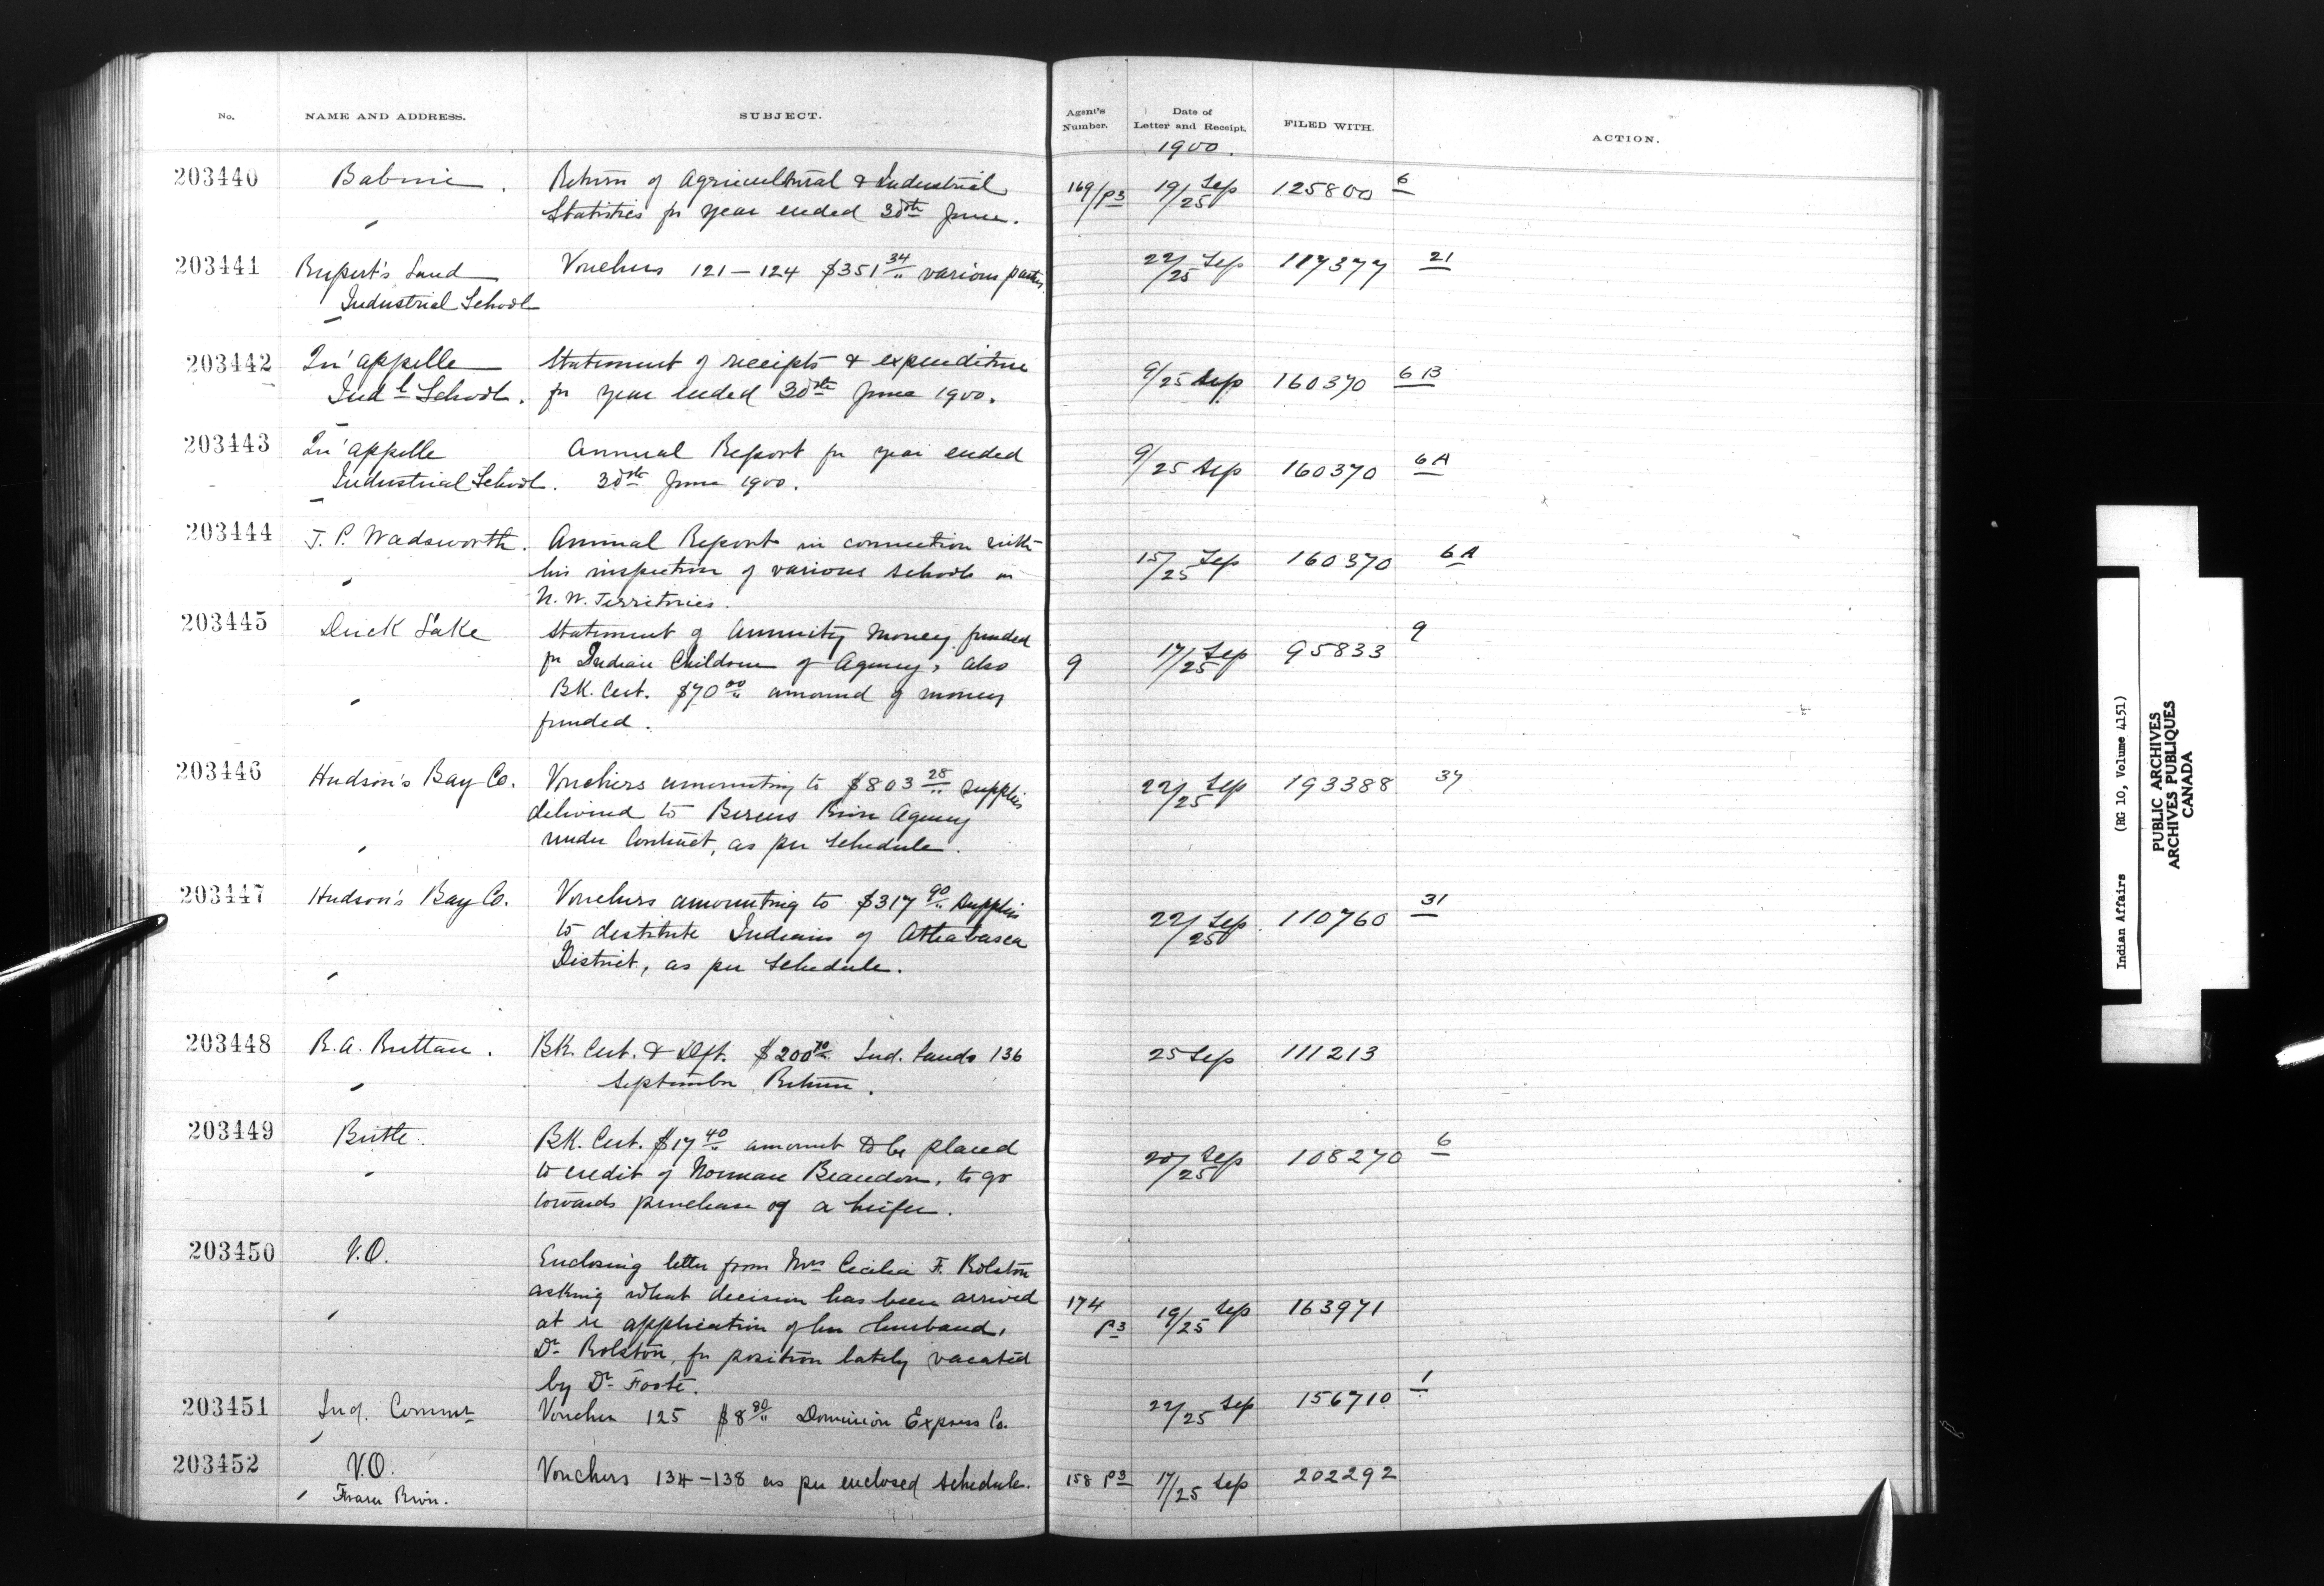 No. NAME AND ADDRESS. SUBJECT. Agent's Number. Date of Letter and Receipt. FILED WITH. ACTION.
1900.
203440 Babine. Return of Agricultural & Industrial 169/P3 19/25 Sep 125800 6
Statistics for year ended 30th June.
203441 Rupert's Land Vouchers 121-124 $351 34/.. various parties. 22/25 Sep 117377 21
Industrial School
203442 Qu'appelle Statement of receipts & expenditure 9/25 Sep 160370 6B
Indl School. for year ended 30th June 1900.
203443 Qu'appelle Annual Report for year ended 9/25 Sep 160370 6A
Industrial School. 30th June 1900.
203444 T. P. Wadsworth. Annual Report in connection with 15/25 Sep 160370 6A
his inspection of various schools in
N. W. Territories.
203445 Duck Lake Statement of Annuity Money funded 9
for Indian Children of Agency, also 9 17/25 Sep 95833
BK. Cert. $70 00/.. amound of money
funded.
203446 Hudson's Bay Co. Vouchers amounting to $803 28/.. supplies 22/25 Sep 193388 34
delivered to Berens River Agency
under Contract, as per schedule.
203447 Hudson's Bay Co. Vouchers amounting to $317 90/.. supplies 22/25 Sep 110760 31
to destitute Indians of Athabasca
District, as per schedule.
203448 R. A. Ruttan. BK. Cert. & Dft. $200 70 Ind. Lands 136 25 Sep 111213
September Return.
203449 Birtle. BK. Cert. $17 40 amount to be placed 20/25 Sep 108270 6
to credit of Norman Beaudon, to go
towards purchase of a heifer.
203450 V.O. Enclosing letter from Mrs Cecilia F. Rolston
asking what decision has been arrived 174 P3 19/25 Sep 163971
at re application of her husband,
Dr Rolston, for position lately vacated
by Dr Foote.
203451 Ind. Commr Voucher 125 $8 80/.. Dominion Express Co. 22/25 Sep 156710 1
203452 V.O. Vouchers 134-138 as per enclosed schedule. 158 P3 17/25 Sep 202292
Fraser River.
Indian Affairs (RG 10, Volume 4151)
PUBLIC ARCHIVES
ARCHIVES PUBLIQUES
CANADA